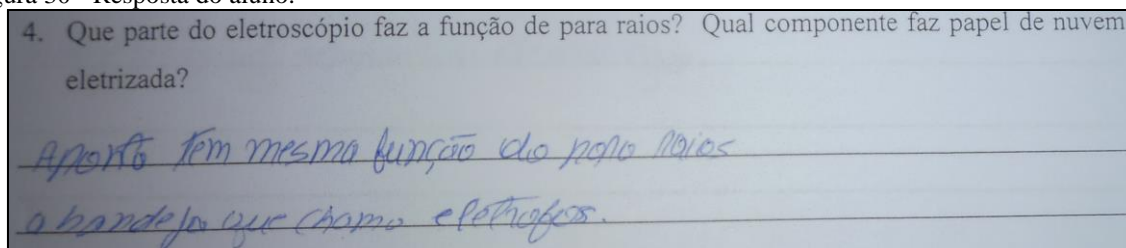 4. Que parte do eletroscópio faz a função de para raios? Qual componente faz papel de nuvem
eletrizada?
Aponta tem mesma função do para raios
a bandeja que chama eletrofors.